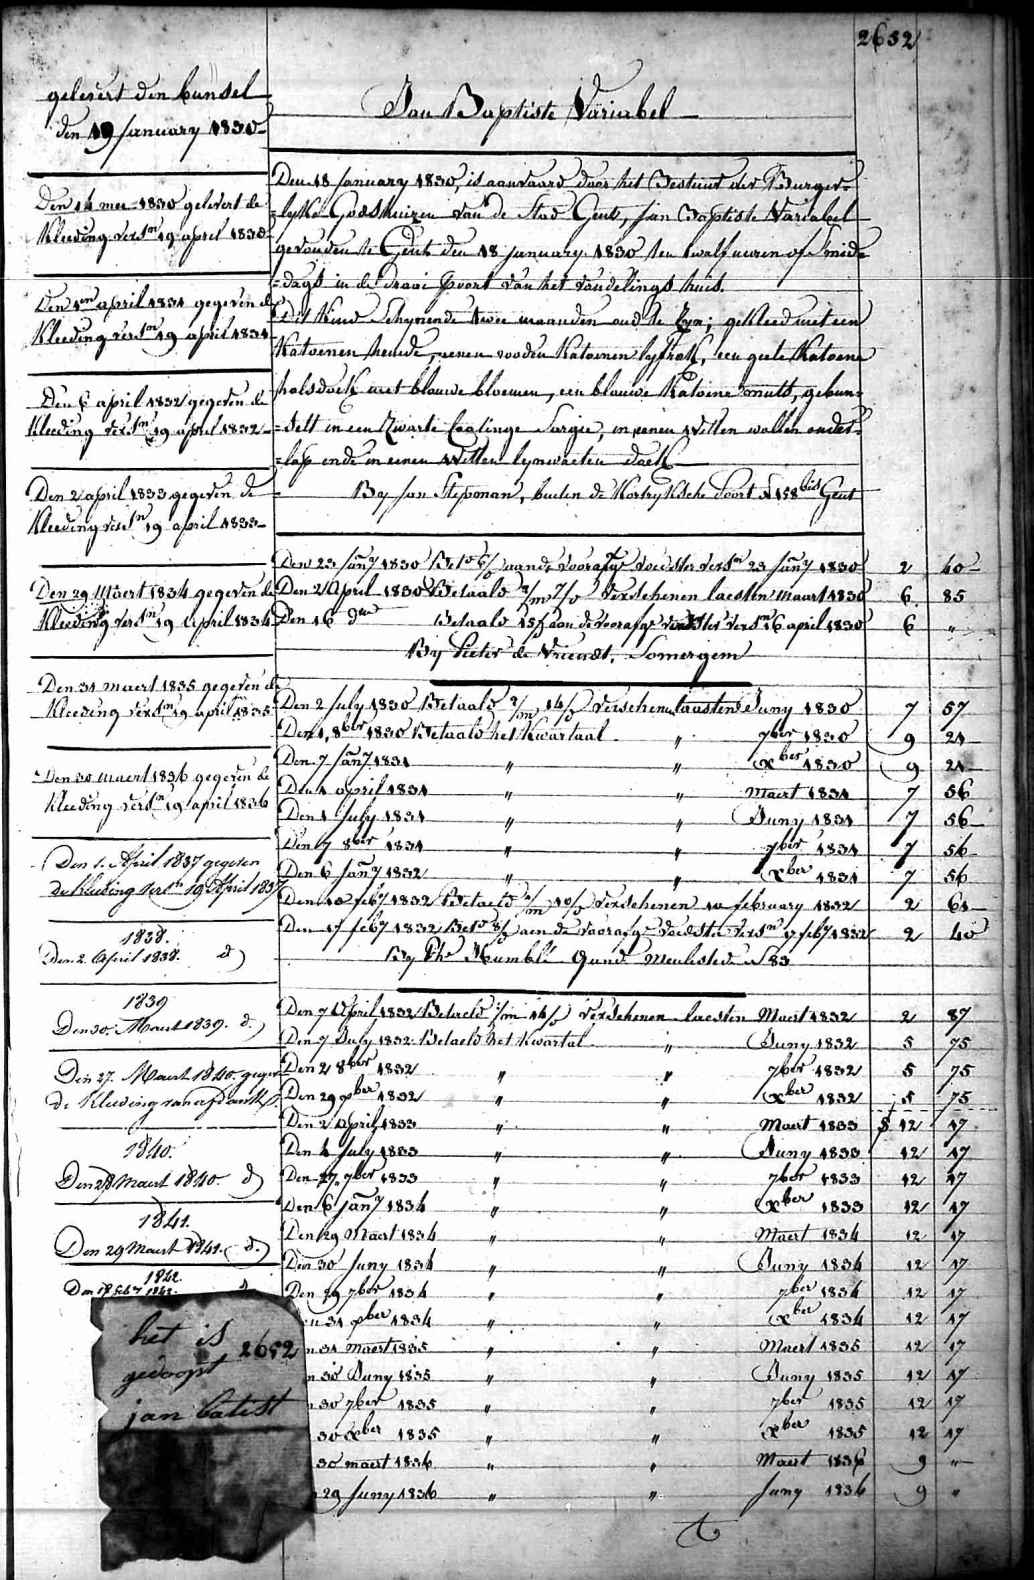 2652
gelevert den bunsel
den 19 January 1830
Jan Baptiste Variabel
Den 14 mei 1830 gelevert de
Kleeding versn 19 april 1830
Den 1en april 1831 gegeven de
Kleeding versn 19 april 1831
Den 6 april 1832 gegeven de
Kleeding versn 19 april 1832
Den 2 april 1833 gegeven de
Kleeding versn 19 april 1833
Den 29 Maert 1834 gegeven de
Kleeding versn 19 April 1834
Den 31 maert 1835 gegeven de
Kleeding versn 19 april 1835
Den 30 maert 1836 gegeven de
Kleeding versn 19 april 1836
Den 1. April 1837 gegeven
de Kleeding versn 19 April 1837
1838.
Den 2. April 1838. d)
1839
Den 30. Maert 1839. d.)
Den 27. Maert 1840. gegev
de Kleeding
1840.
Den 28 Maert 1840 d)
1841.
Den 29 Maert 1841. (d.)
1842.
Den 18 feby 1842. d
Den 18 January 1830, is aanvaard door het Bestuur der Burger=
=lyke Godshuizen van de Stad Gent, Jan Baptiste Variabel
gevonden te Gent den 18 January 1830 ten twalf uuren of mid=
=dags in de draai poort van het vondelings huis.
Dit Kind schynende twee maanden oud te zyn; gekleed met een
Katoenen hemde, eenen rooden Katoenen lyfrok, een geele Katoene
halsdoek met blauwe bloemen, een blauwe Katoene muts, gebun=
=delt in een Zwarte Sargie, in eenen witten wollen onder=
=lap ende in eenen Witten lynwaeten doek
By Jan Steponan, buiten de Kortryksche Poort N 158 bis Gent
Den 23 Jany 1830 Betd 6/0 aan de voorafge voedster versn 23 Jany 1830 2 40
Den 2 April 1830 Betaald 2/m 7/0 verschenen laesten maart 1830 6 85
Den 16 do Betaald 15/0 aan de voorafge voedster versn 16 april 1830 6 "
By Pieter de Vriendt, Somergem
Den 2 July 1830 Betaald 2/m 14/0 verschenen laasten Juny 1830 7 57
Den 1, 8ber 1830 Betaald het Kwartaal " 7ber 1830 9 21
Den 7 Jany 1831 " " Xber 1830 9 21
Den 1 april 1831 " " Maert 1831 7 56
Den 1 July 1831 " " Juny 1831 7 56
Den 7 8ber 1831 " " 7ber 1831 7 56
Den 6 Jany 1832 " " Xber 1831 7 56
Den 10 feby 1832 Betaeld 1/m 10/0 verschenen 10 february 1832 2 61
Den 17 feby 1832 Betd 8/0 aen de voorafge voedster versn 17 feby 1832 2 40
By Humblé Gend Meulestede N 83
Den 7 April 1832 Betaeld 1/m 14/0 verschenen laesten Maert 1832 2 87
Den 7 July 1832 Betaeld het Kwartal " Juny 1832 5 75
Den 2 8ber 1832 " " 7ber 1832 5 75
Den 29 xber 1832 " " Xber 1832 5 75
Den 2 April 1833 " " Maert 1833 $ 12 17
Den 1 July 1833 " " Juny 1833 12 17
Den 27. 7ber 1833 " " 7ber 1833 12 17
Den 6 Jany 1834 " " Xber 1833 12 17
Den 29 Maert 1834 " " Maert 1834 12 17
Den 30 Juny 1834 " " Juny 1834 12 17
Den 29 7ber 1834 " " 7ber 1834 12 17
n 31 xber 1834 " " Xber 1834 12 17
n 31 maert 1835 " " Maert 1835 12 17
n 30 Juny 1835 " " Juny 1835 12 17
30 7ber 1835 " " 7ber 1835 12 17
30 Xber 1835 " " Xber 1835 12 17
30 maert 1836 " " Maert 1836 9 "
29 Juny 1836 " " Juny 1836 9 "
het is 2652
gedoopt
jan batist